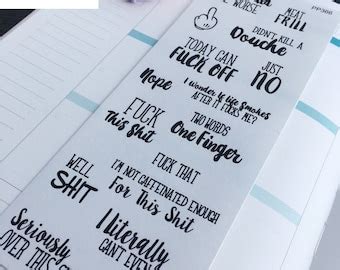 PP366
WORSE
MEAT
GRILL
DIDN'T KILL A
Douche
TODAY CAN
FUCK OFF
JUST
NO
Nope
I Wonder If Life Smokes
AFTER IT FUCKS ME?
FUCK
This Shit
TWO WORDS
One Finger
FUCK THAT
WELL
SHIT
I'M NOT CAFFEINATED ENOUGH
For This Shit
Seriously
OVER THIS
I Literally
CAN'T EVEN